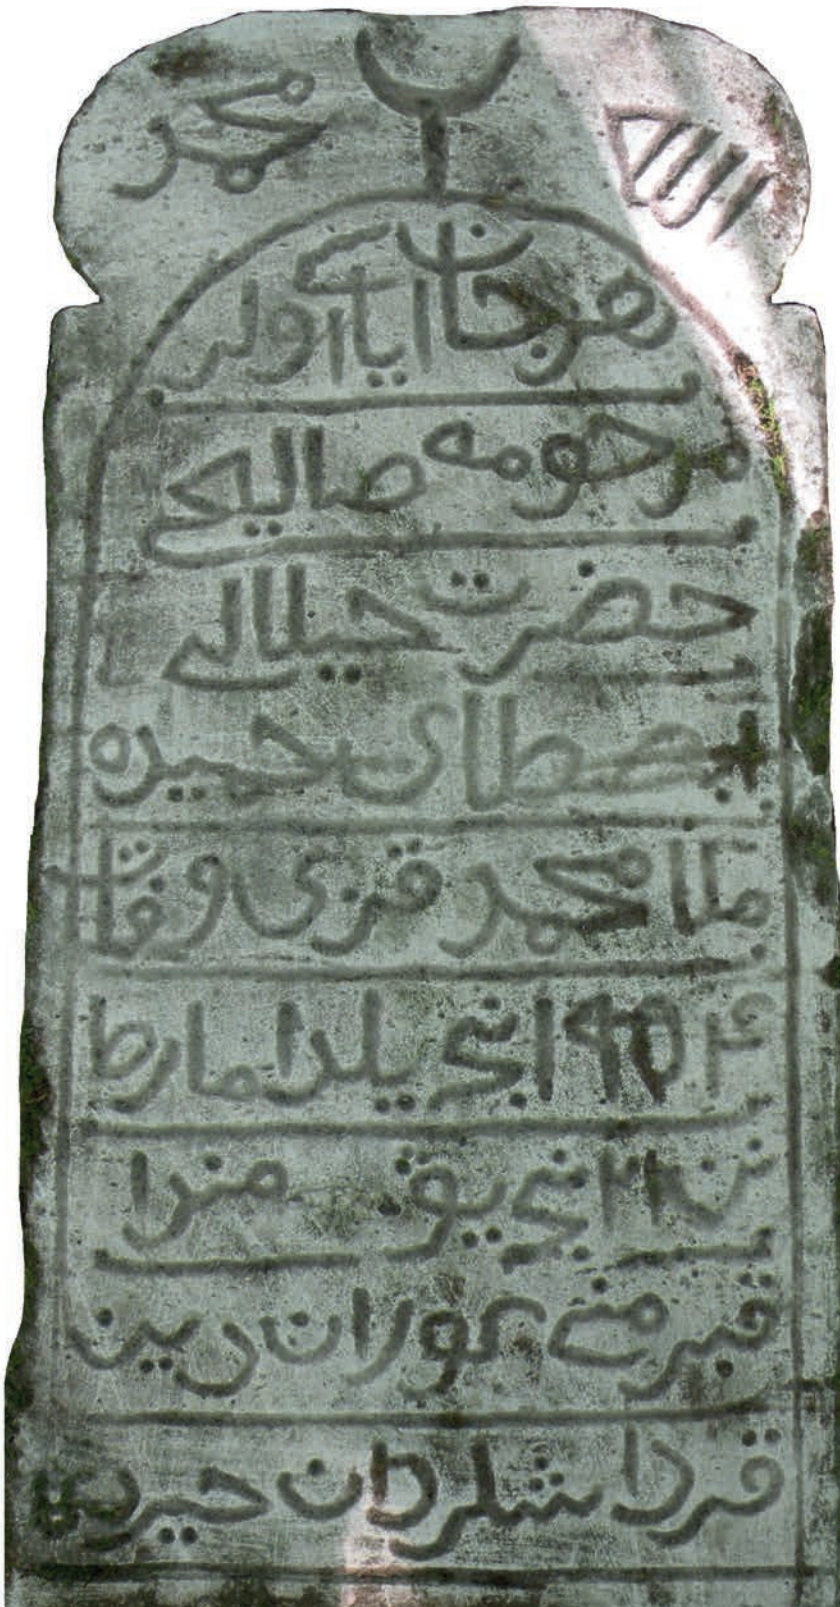 الله محمد
هر جان اياسي اولر
مرحومه صاليحه
حضرت جيلالي
مصطاى حميده
ملا محمد قزى وفات
۱۹۵۴ انجى يلدا مارط
نڭ ۲۱ نجى يوٯمندا
قبرمنى كوران دين
قرداشلردان خير